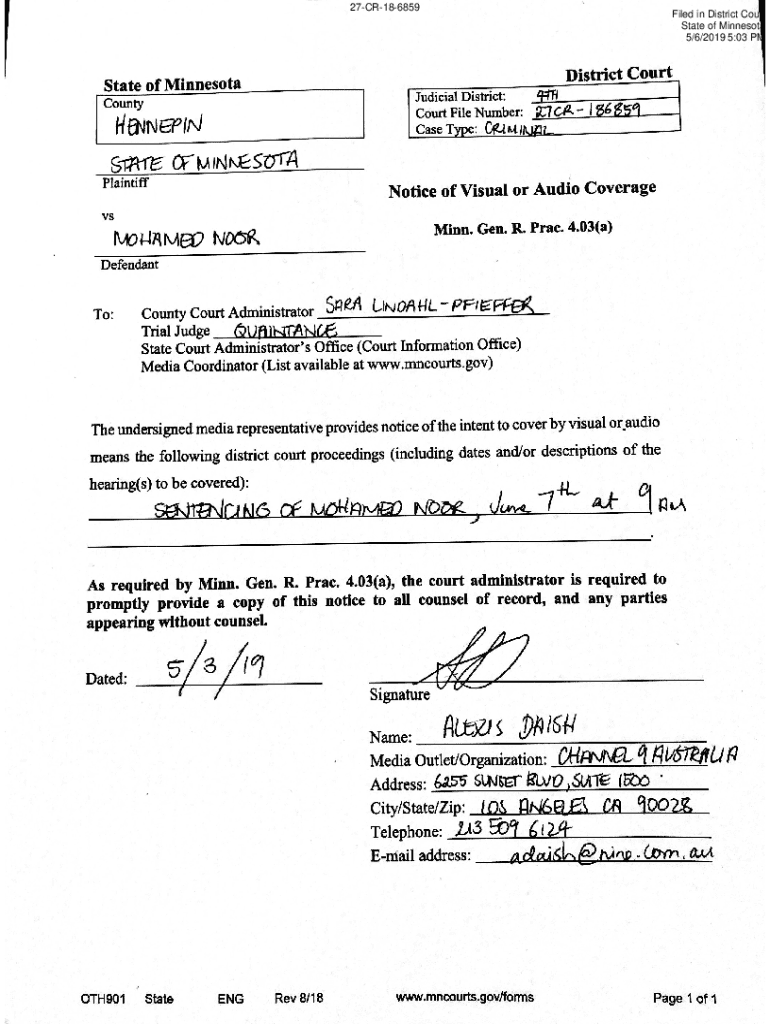 27-CR-18-6859
Filed in District Cou
State of Minnesot
5/6/2019 5:03 PM
State of Minnesota
District Court
County
HENNEPIN
Judicial District: 4TH
Court File Number: 27CR-186859
Case Type: CRIMINAL
STATE OF MINNESOTA
Plaintiff
Notice of Visual or Audio Coverage
vs
Minn. Gen. R. Prac. 4.03(a)
MOHAMED NOOR
Defendant
To: County Court Administrator SARA LINDAHL-PFIEFFER
Trial Judge QUAINTANCE
State Court Administrator's Office (Court Information Office)
Media Coordinator (List available at www.mncourts.gov)
The undersigned media representative provides notice of the intent to cover by visual or audio
means the following district court proceedings (including dates and/or descriptions of the
hearing(s) to be covered):
SENTENCING OF MOHAMED NOOR, June 7th at 9 AM
As required by Minn. Gen. R. Prac. 4.03(a), the court administrator is required to
promptly provide a copy of this notice to all counsel of record, and any parties
appearing without counsel.
Dated: 5/3/19
Signature
Name: ALEXIS DAISH
Media Outlet/Organization: CHANNEL 9 AUSTRALIA
Address: 6255 SUNSET BLVD, SUITE 1500
City/State/Zip: LOS ANGELES CA 90028
Telephone: 213 509 6124
E-mail address: adaish@nine.com.au
OTH901 State ENG Rev 8/18 www.mncourts.gov/forms Page 1 of 1